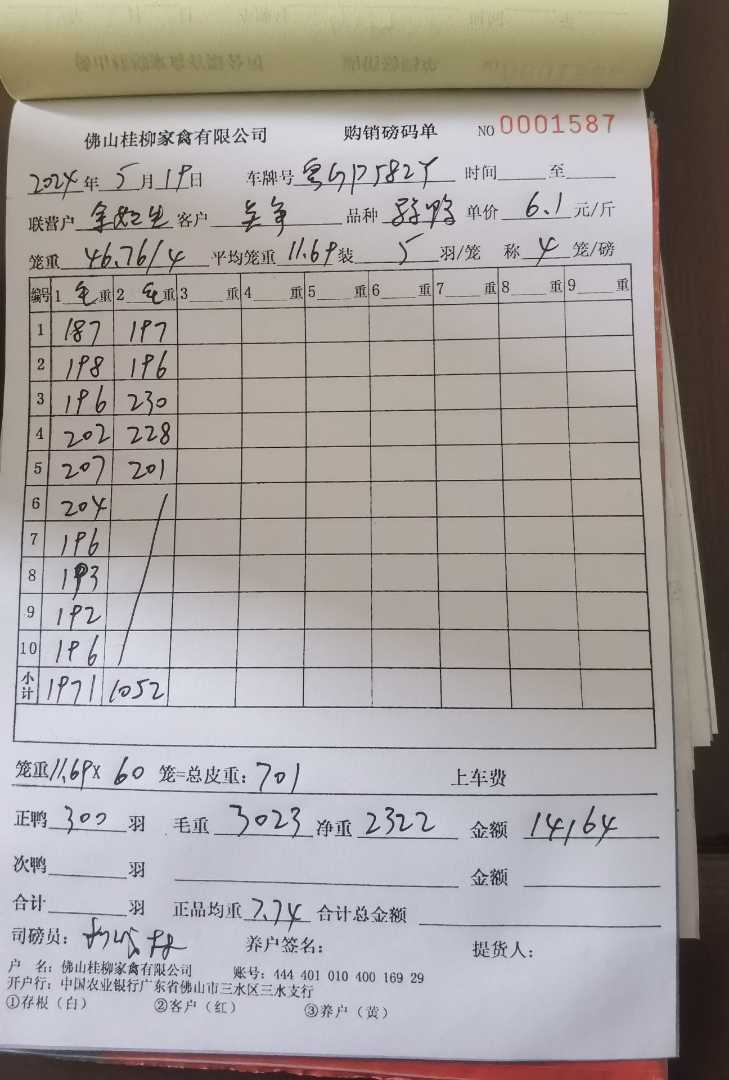 佛山桂柳家禽有限公司 购销磅码单 NO 0001587
2024年5月19日 车牌号 粤 582Y 时间 至
联营户 客户 品种 鸭 单价 6.1 元/斤
笼重 46.76/4 平均笼重 11.69 装 5 羽/笼 称 4 笼/磅
编号 1 毛 重 2 毛 重 3 重 4 重 5 重 6 重 7 重 8 重 9 重
1 187 197
2 198 196
3 196 230
4 202 228
5 207 201
6 204
7 196
8 193
9 192
10 196
小计 1971 1052
笼重 11.69 X 60 笼=总皮重: 701 上车费
正鸭 300 羽 毛重 3023 净重 2322 金额 14164
次鸭 羽 金额
合计 羽 正品均重 7.74 合计总金额
司磅员: 养户签名: 提货人:
户 名: 佛山桂柳家禽有限公司 账号: 444 401 010 400 169 29
开户行: 中国农业银行广东省佛山市三水区三水支行
①存根（白） ②客户（红） ③养户（黄）